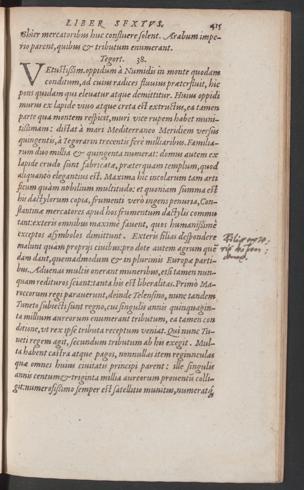 LIBER SEXTVS. 415
thier mercatoribus huc confluere solent. Arabum impe-
rio parent, quibus & tributum enumerant.
Tegort. 38.
VEtustissim. oppidum à Numidis in monte quodam
conditum, ad cuius radices fluuius præterfluit, hic
pons quidam qui eleuatur atque demittitur. Huius oppidi
murus ex lapide viuo atque creta est extructus, ea tamen
parte qua montem respicit, muri vice rupem habet muni-
tissimam: distat à mari Mediterraneo Meridiem versùs
quingentis, à Tegorarin trecentis ferè milliaribus. Familia-
rum duo millia & quingenta numerat: domus autem ex
lapide crudo sunt fabricata, præterquam templum, quod
aliquanto elegantius est. Maxima hic incolarum tam arti
ficum quàm nobilium multitudo: et quoniam summa est
his dactylorum copia, frumenti verò ingens penuria, Con-
stantinæ mercatores apud hos frumentum dactylis commu
tant: exteris omnibus maximè fauent, quos humanissimè
exceptos asymbolos dimittunt. Exteris filias despondere
malunt quàm proprijs ciuibus: pro dote autem agrum quẽ
dam dant, quemadmodum & in plurimis Europæ parti-
bus. Aduenas multis onerant muneribus, etsi tamen nun-
quam redituros sciant: tanta his est liberalitas. Primò Ma-
roccorum regi paruerunt, deinde Telensino, nunc tandem
Tuneto subiecti sunt regno, cuius singulis annis quinquagin-
ta millium aureorum enumerant tributum, ea tamen con
ditione, vt rex ipse tributa receptum veniat. Qui nunc Tu-
neti regem agit, secundum tributum ab his exegit. Mul-
ta habent castra atque pagos, nonnullas item regiunculas
quæ omnes huius ciuitatis principi parent: ille singulis
annis centum & triginta millia aureorum prouentũ colli-
git: numerosissimo semper est satellitio munitus, numeratq́